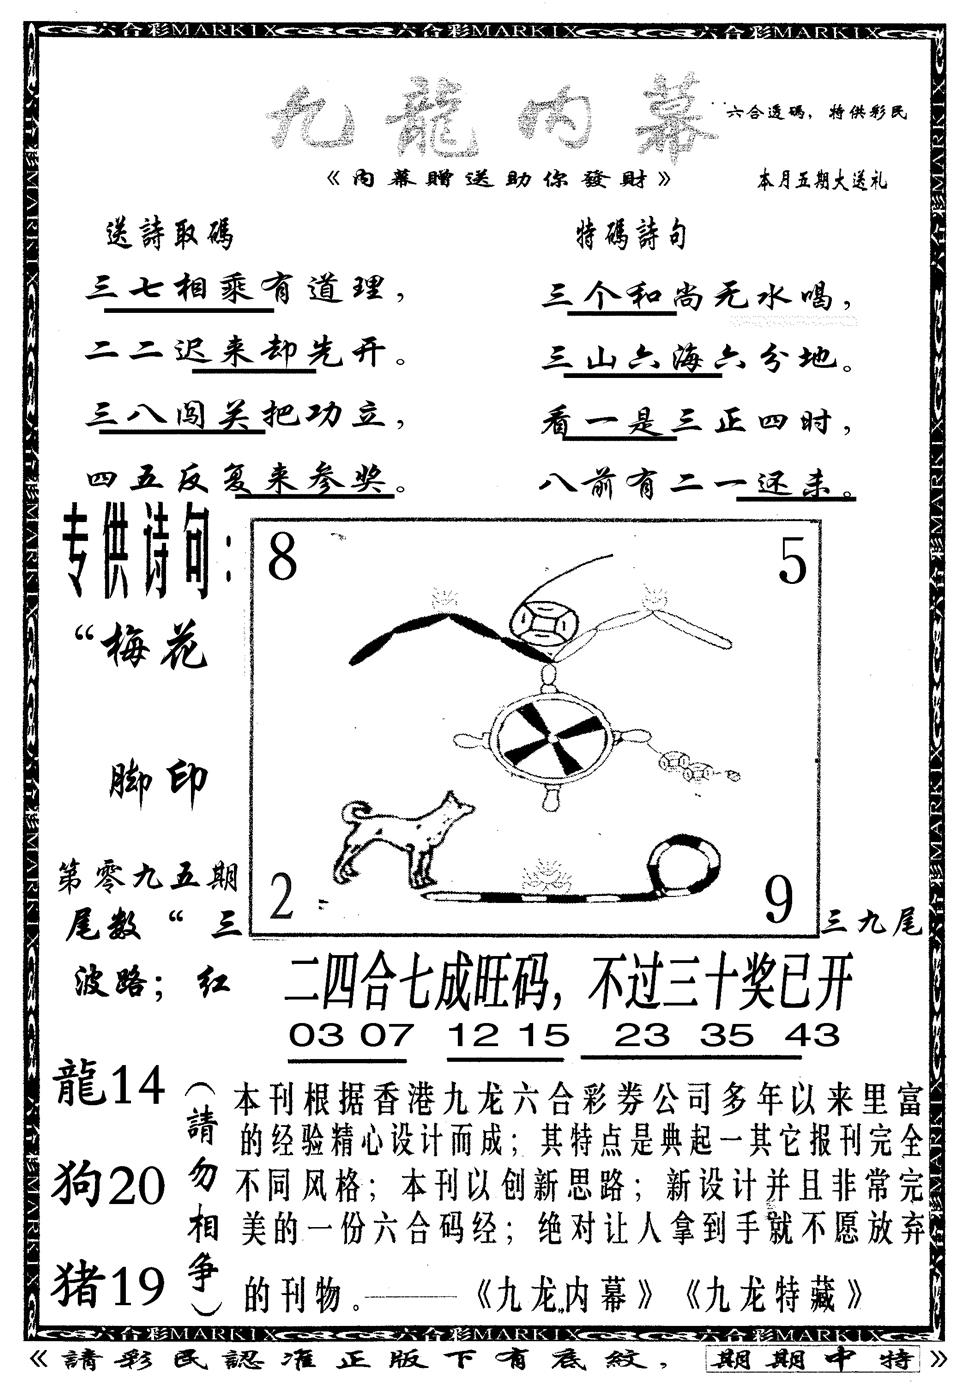 九龍内幕
六合透碼，特供彩民
《内幕贈送助你發財》
本月五期大送礼
送詩取碼
三七相乘有道理，
二二迟来却先开。
三八闯关把功立，
四五反复来参奖。
特碼詩句
三个和尚无水喝，
三山六海六分地。
看一是三正四时，
八前有二一还未。
专供诗句：
“梅花
脚印
第零九五期
尾数“三
三九尾
波路；红
8
5
2
9
二四合七成旺码，不过三十奖已开
03 07 12 15 23 35 43
龍14
狗20
猪19
（請勿相争）
本刊根据香港九龙六合彩券公司多年以来里富
的经验精心设计而成；其特点是典起一其它报刊完全
不同风格；本刊以创新思路；新设计并且非常完
美的一份六合码经；绝对让人拿到手就不愿放弃
的刊物。——《九龙内幕》《九龙特藏》
《請彩民認准正版下有底紋，期期中特》
六合彩MARKIX